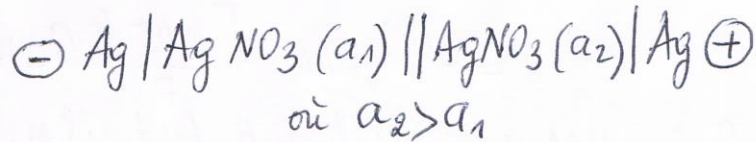 ⊖ Ag | AgNO₃ (a₁) || AgNO₃ (a₂) | Ag ⊕
où a₂ > a₁